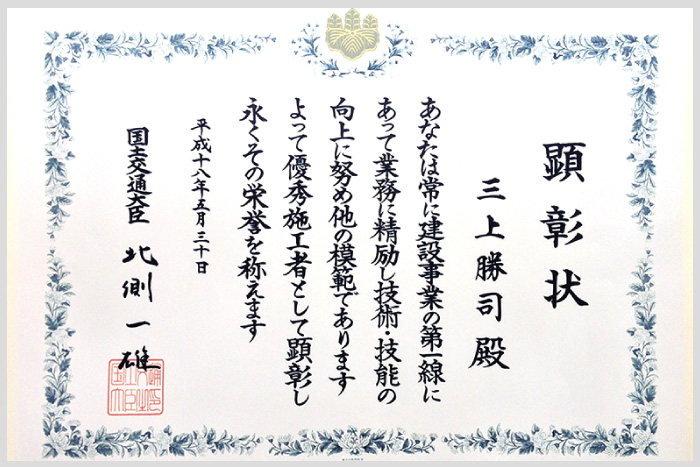 顕彰状
三上勝司殿
あなたは常に建設事業の第一線に
あって業務に精励し技術・技能の
向上に努め他の模範であります
よって優秀施工者として顕彰し
永くその栄誉を称えます
平成十八年五月三十日
国土交通大臣 北側一雄